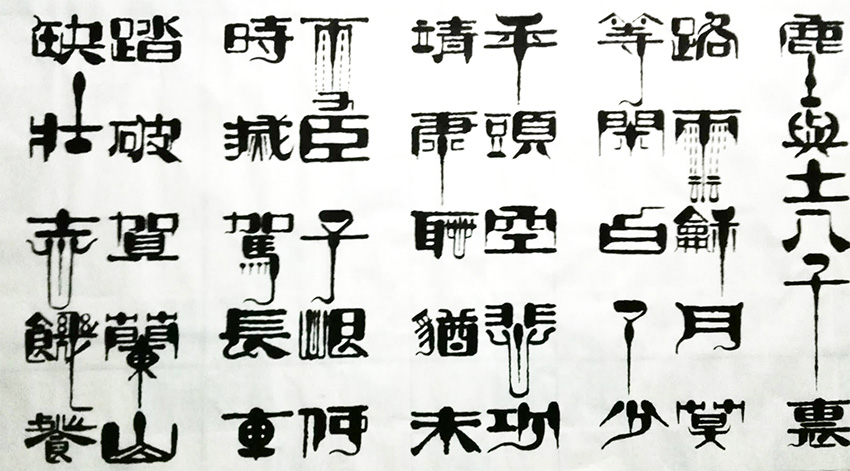 塵與土八千裏
路雲龢月莫
等閑白了少
年頭空悲切
靖康恥猶未
雪臣子恨何
時滅駕長車
踏破賀蘭山
缺壯志饑餐